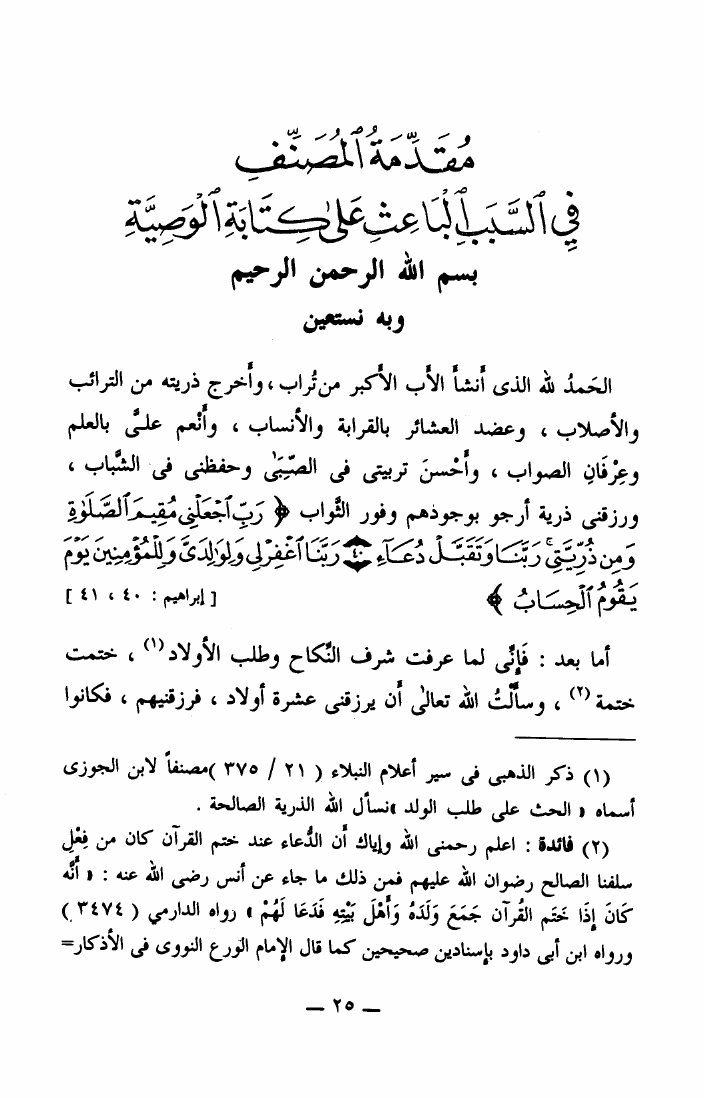 مُقَدِّمَةُ ٱلْمُصَنِّفِ
فِي ٱلسَّبَبِ ٱلْبَاعِثِ عَلَىٰ كِتَابَةِ ٱلْوَصِيَّةِ
بسم الله الرحمن الرحيم
وبه نستعين
الحَمدُ لله الذى أَنشأَ الأَب الأَكبر من تُراب ، وأَخرج ذريته من الترائب
والأصلاب ، وعضد العشائر بالقرابة والأنساب ، وأَنْعم علىَّ بالعلم
وعِرْفَانِ الصواب ، وأَحْسنَ تربيتى فى الصِّبَىٰ وحفظنى فى الشَّباب ،
ورزقنى ذرية أرجو بوجودهم وفور الثَّواب ﴿ رَبِّ ٱجْعَلْنِى مُقِيمَ ٱلصَّلَوٰةِ
وَمِن ذُرِّيَّتِى ۚ رَبَّنَا وَتَقَبَّلْ دُعَآءِ ۝٤٠ رَبَّنَا ٱغْفِرْ لِى وَلِوَٰلِدَىَّ وَلِلْمُؤْمِنِينَ يَوْمَ
يَقُومُ ٱلْحِسَابُ ﴾ [ إبراهيم : ٤٠ ، ٤١ ]
أما بعد : فَإِنَّى لما عرفت شرف النِّكاح وطلب الأولاد (١) ، ختمت
ختمة (٢) ، وسأَلْتُ الله تعالىٰ أَن يرزقنى عشرة أولاد ، فرزقنيهم ، فكانوا
(١) ذكر الذهبى فى سير أعلام النبلاء ( ٢١ / ٣٧٥ )مصنفاً لابن الجوزى
أسماه « الحث على طلب الولد »نسأل الله الذرية الصالحة .
(٢) فائدة : اعلم رحمنى الله وإياك أن الدُّعاء عند ختم القرآن كان من فِعْلِ
سلفنا الصالح رضوان الله عليهم فمن ذلك ما جاء عن أنس رضى الله عنه : « أَنَّه
كَانَ إِذَا خَتَم القُرآن جَمَعَ وَلَدَهُ وَأَهْلَ بَيْتِهِ فَدَعَا لَهُمْ » رواه الدارمي ( ٣٤٧٤ )
ورواه ابن أبى داود بإسنادين صحيحين كما قال الإمام الورع النووى فى الأذكار=
— ٢٥ —